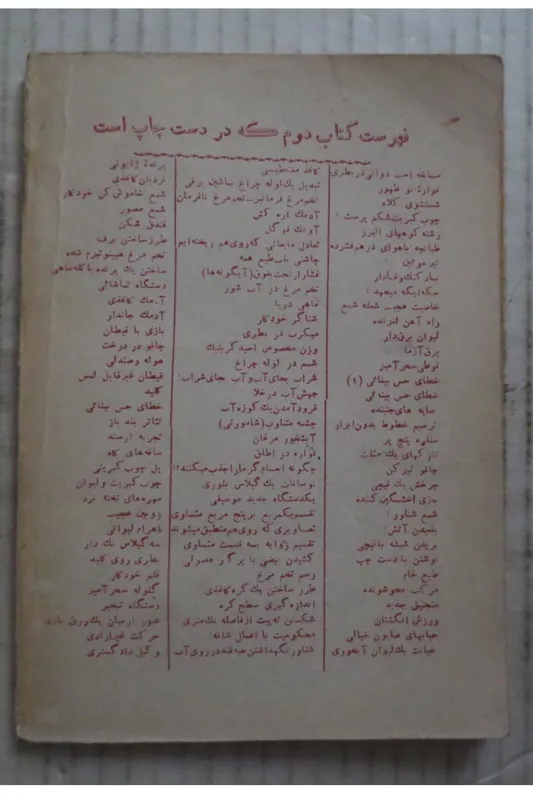 فهرست کتاب دوم که در دست چاپ است
مسابقه اسب دوانی در بطری
فواره نو ظهور
شستشوی کلاه
چوب کبریت شکم پرست
رشته کوههای البرز
طپانچه باهوای درهم فشرده
خاصیت عجیب شعله شمع
راه آهن لغزنده
لیوان برق‌دار
برق آزما
قوطی سحر آمیز
خطای حس بینائی (۱)
خطای حس بینائی
سایه های جنبنده
ترسیم خطوط بدون ابزار
ستاره پنج پر
چاقو تیز کن
چرخش یک قیچی
شمع شناور!
بلعیدن آتش!
بریدن شیشه باقیچی
نوشتن با دست چپ
طبع خام
مرکب محو شونده
منجنیق جدید
ورزش انگشتان
حبابهای صابون خیالی
خیانت یک لیوان آبخوری
کاغذ مغناطیسی
تبدیل یک لوله چراغ بماشین برقی
تخم مرغ فرمانبر - تخم مرغ نافرمان
آدمک اره کش
آونگ فوکل
تعادل مایعاتی که روی هم ریخته‌ایم
چاشنی باب طبع همه
فشار از تحت بفوق (آبگونه‌ها)
تخم مرغ در آب شور
ماهی دریا
شناگر خودکار
میکرب در بطری
وزن مخصوص اسید کربنیک
شمع در لوله چراغ
شراب بجای آب و آب بجای شراب!
جهش آب در خلا
فرود آمدن یک کوزه آب
چشمه متناوب (شامورتی)
آبشخور مرغان
فواره در اطاق
چگونه اجسام گرما را جذب میکنند؟!
نوسانات یک گیلاس بلوری
یکدستگاه جدید موسیقی
تقسیم یک مربع بر پنج مربع متساوی
تصاویری که روی هم منطبق میشوند
تقسیم زاویه بسه قسمت متساوی
کشیدن بیضی با پرگار معمولی
رسم تخم مرغ
طرز ساختن یک کره کاغذی
اندازه گیری سطح کره
شکستن نی بیت از فاصله یک متری
محکومیت با اعمال شاقه!
شناور نگهداشتن حبه قند در روی آب
پرنده ژاپونی
نردبان کاغذی
شمع خاموش کن خودکار
شمع مصور
فندق شکن
طرز ساختن برف
تخم مرغ هیپنوتیزم شده
ساختن یک پرنده با کله ماهی
دستگاه تماشائی
آدمک کاغذی
آدمک جاندار
بازی با قیطان
چاقو در درخت
حوله و صندلی
قیطان غیرقابل لمس
کلید
خطای حس بینائی
تئاتر بند باز
تجربه ارسند
ساقه‌های کاه
پل چوب کبریتی
چوب کبریت و لیوان
مهره‌های تخته نرد
زوبین عجیب
اهرام لیوانی
سه گیلاس تک دار
بطری روی کلید
قلم خودکار
گلوله سحر آمیز
دستگاه تبخیر
عبور از میان یک ورق
حرکت غیرارادی
وکیل دادگستری